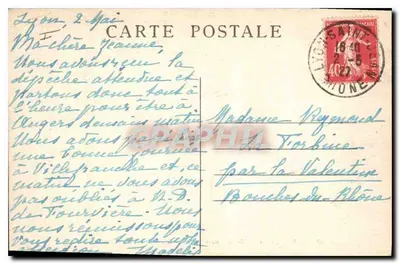 CARTE POSTALE
Lyon, 2 Mai
Ma Chère Jeanne,
Nous avons reçu la
dépêche attendue et
partons donc tout à
l'heure pour être à
Angers demain matin
Nous avons passé
une bonne journée
à Villefranche et, ce
matin ne vous avons
pas oubliés à N.D.
de Fourvière. Nous
nous réjouissons pour
vous redire toute notre
Madame Reymond
La Forbine
par La Valentine
Bouches du Rhône
LYON-SAINT
18 40
2 -5
RHONE